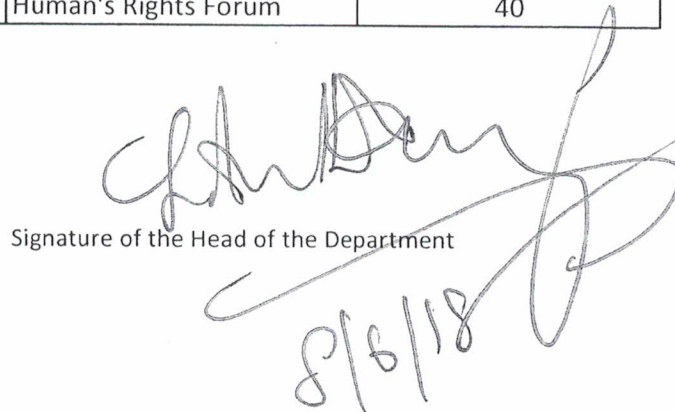 Human's Rights Forum 40
Signature of the Head of the Department
8/6/18